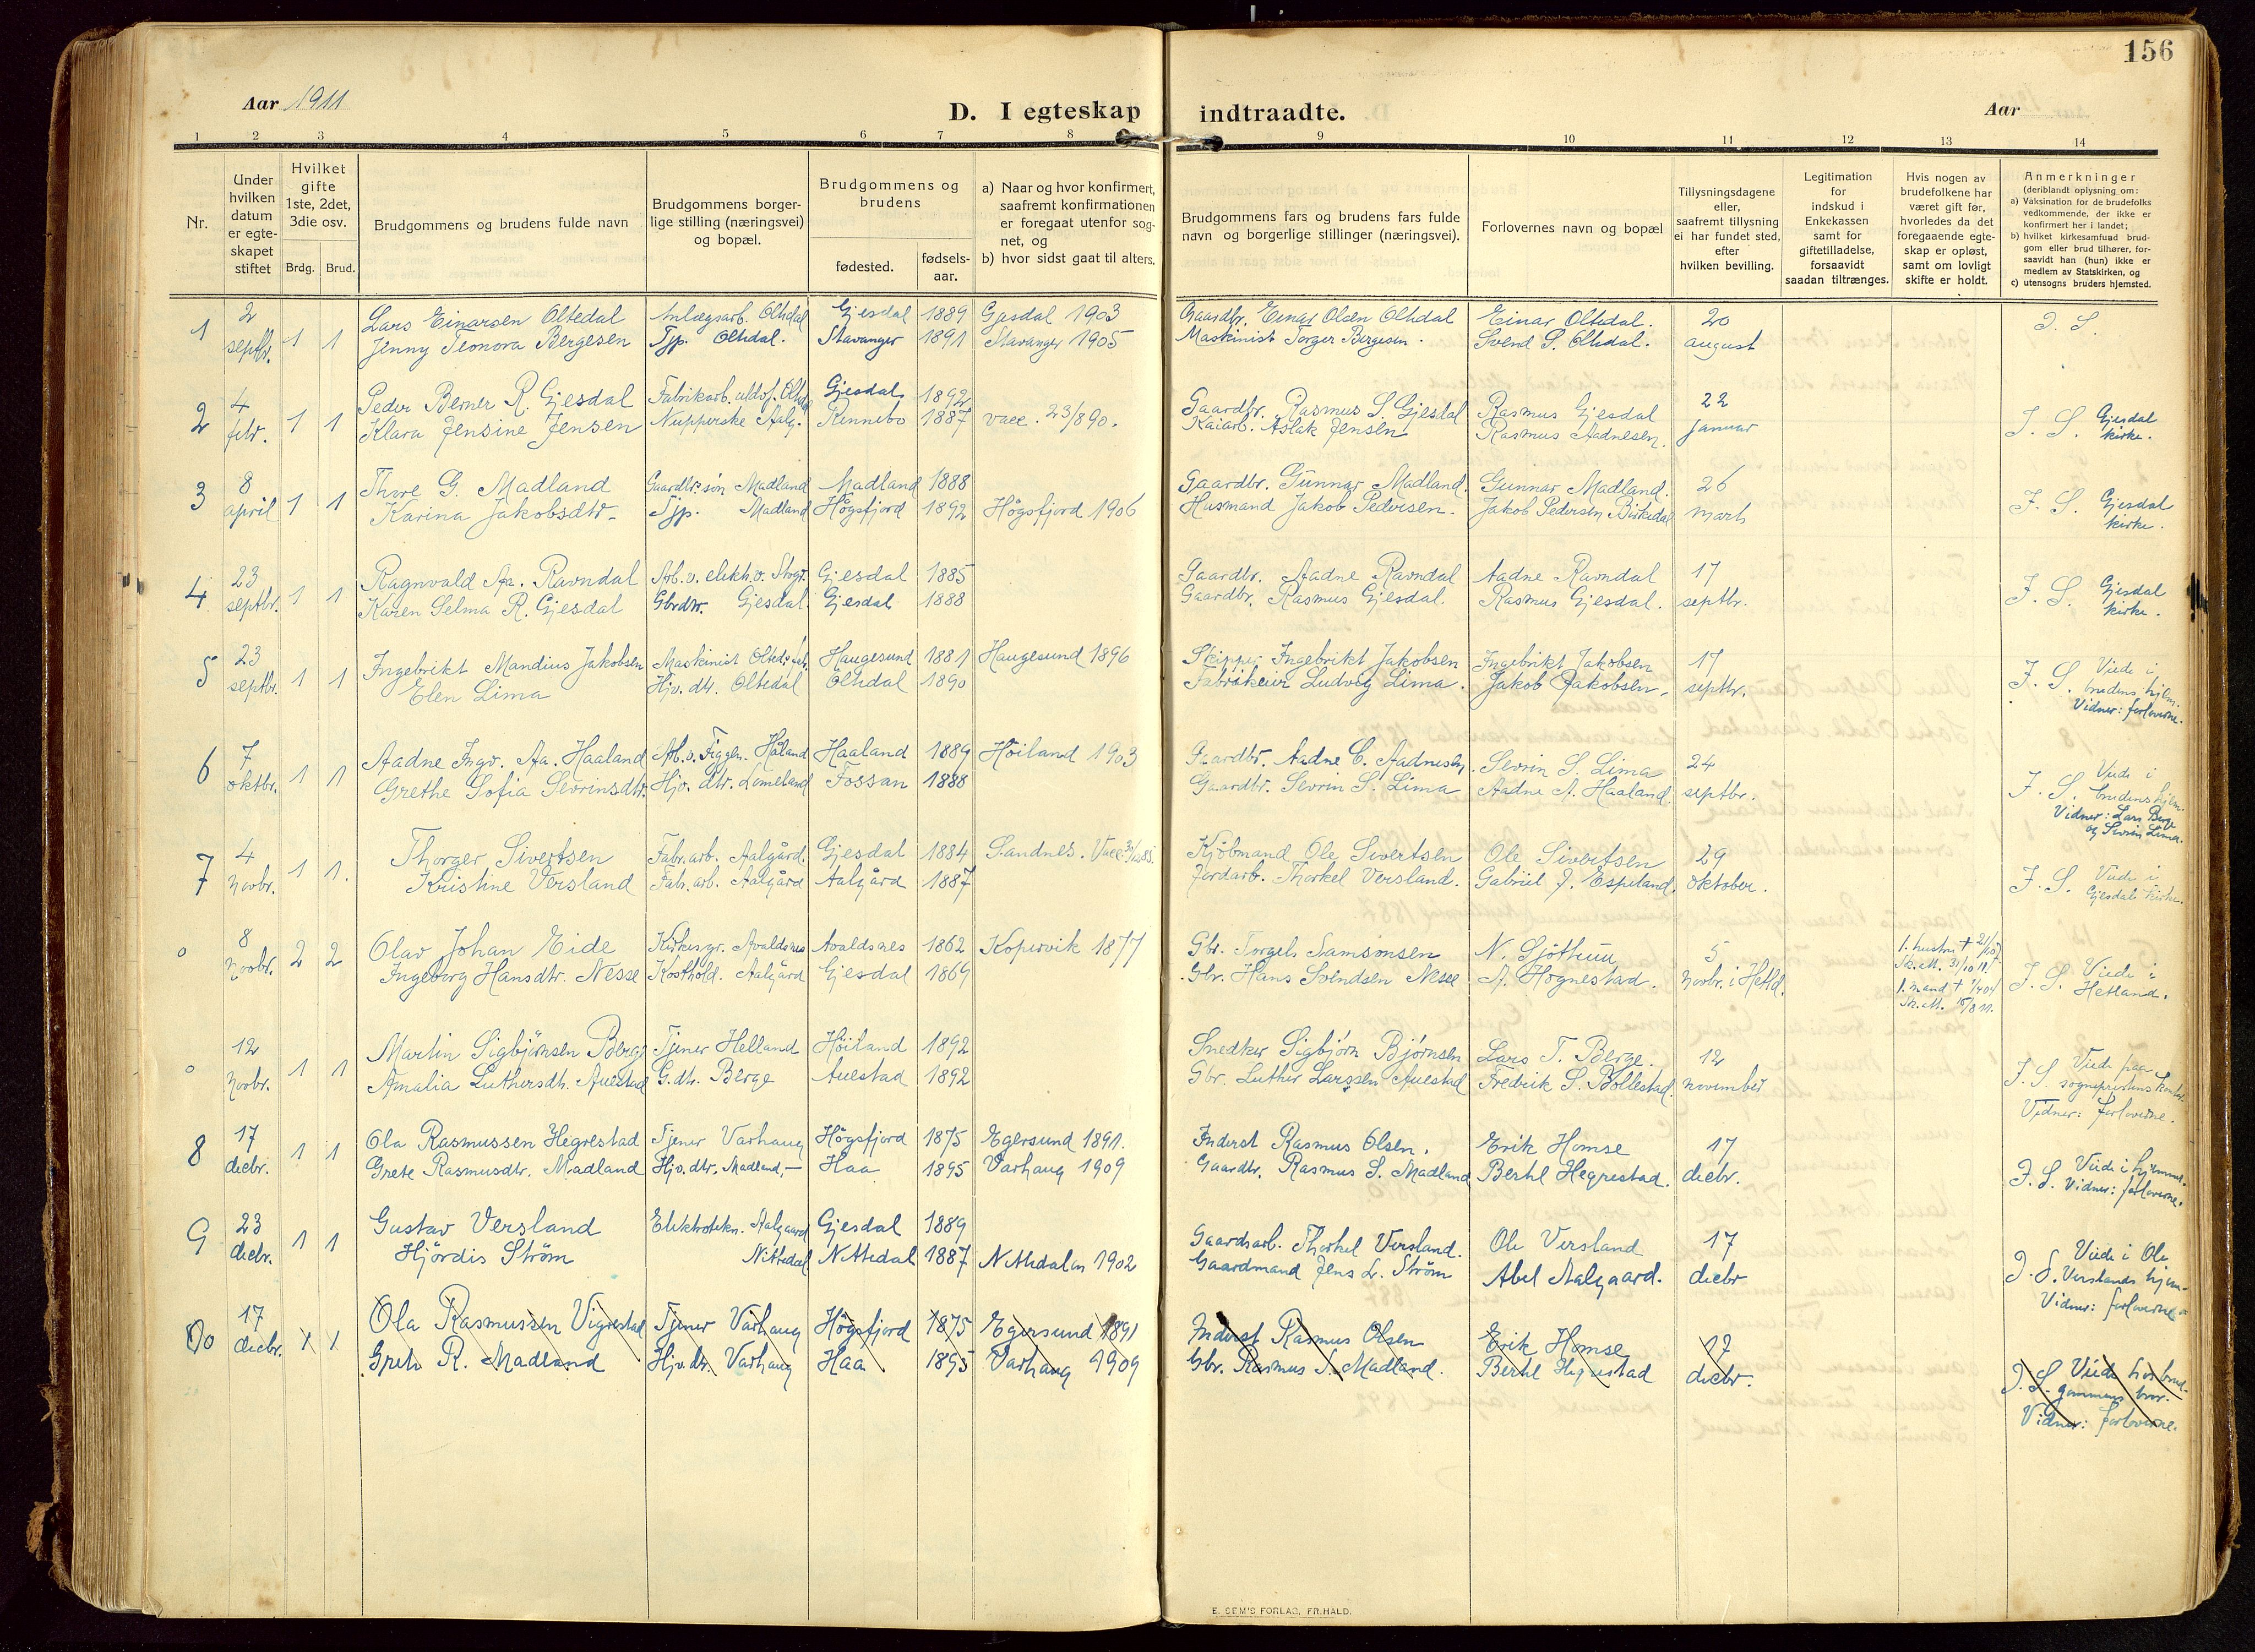 156
Aar 1911
D. I egteskap indtraadte.
Aar
1 2 3 4 5 6 7 8 9 10 11 12 13 14
Nr.
Under hvilken datum er egte-skapet stiftet
Hvilket gifte 1ste, 2det, 3die osv.
Brdg. Brud.
Brudgommens og brudens fulde navn
Brudgommens borger-lige stilling (næringsvei) og bopæl.
Brudgommens og brudens
fødested.
fødsels-aar.
a) Naar og hvor konfirmert, saafremt konfirmationen er foregaat utenfor sog-net, og
b) hvor sidst gaat til alters.
Brudgommens fars og brudens fars fulde navn og borgerlige stillinger (næringsvei).
Forlovernes navn og bopæl
Tillysningsdagene eller, saafremt tillysning ei har fundet sted, efter hvilken bevilling.
Legitimation for indskud i Enkekassen samt for giftetilladelse, forsaavidt saadan tiltrænges.
Hvis nogen av brudefolkene har været gift før, hvorledes da det foregaaende egte-skap er opløst, samt om lovligt skifte er holdt.
Anmerkninger
(deriblandt oplysning om:
a) Vaksination for de brudefolks vedkommende, der ikke er konfirmert her i landet;
b) hvilket kirkesamfund brud-gom eller brud tilhører, for-saavidt han (hun) ikke er medlem av Statskirken, og
c) utensogns bruders hjemsted.
2 Lars Einarsen Oltedal Anlægsarb. Oltedal Gjesdal 1889 Gjesdal 1903 Gaardbr. Einar Olsen Oltedal Einar Oltedal. 20
1 septbr. 1 1 Jenny Teonora Bergesen Tjp. Oltedal. Stavanger 1891 Stavanger 1905 Maskinist Torger Bergesen. Svend S. Oltedal. august J. S.
4 Peder Berner R. Gjesdal Fabrikarb. Gjesdal 1892 Gaardbr. Rasmus S. Gjesdal Rasmus Gjesdal 22
2 febr. 1 1 Klara Jensine Jensen Nupperske Aalg. Rennebo 1887 vacc. 23/890. Kaiarb. Aslak Jensen Rasmus Aadnesen. Januar J. S. Gjesdal kirke.
8 Thore G. Madland Gaardbr. søn Madland Madland 1888 Gaardbr. Gunnar Madland. Gunnar Madland. 26
3 april 1 1 Karina Jakobsdtr. Tjp. Madland Högsfjord 1892 Högsfjord 1906 Husmand Jakob Pedersen. Jakob Pedersen Birkedal marts J. S. Gjesdal kirke.
23 Ragnvald Aa. Ravndal Arb. v. elektr. v. Gjesdal 1885 Gaardbr. Aadne Ravndal Aadne Ravndal 17
4 septbr. 1 1 Karen Selma R. Gjesdal Gbrdtr. Gjesdal. Gjesdal 1888 Gaardbr. Rasmus Gjesdal. Rasmus Gjesdal. septbr. J. S. Gjesdal kirke.
23 Ingebrikt Mandius Jakobsen Maskinist Olted. fab. Haugesund 1881 Haugesund 1896 Skipper Ingebrikt Jakobsen Ingebrikt Jakobsen 17
5 septbr. 1 1 Elen Lima Hjv. dtr. Oltedal Oltedal 1890 Fabrikeier Ludvig Lima. Jakob Jakobsen septbr. J. S. Viede i brudens hjem. Vidner: forloverne.
7 Aadne Ingv. Aa. Haaland Arb. v. Figgen. Håland Haaland 1889 Höiland 1903 Gaardbr. Aadne C. Aadnesen. Sevrin S. Lima 24
6 oktbr. 1 1 Grethe Sofia Sevrinsdtr. Hjv. dtr. Limeland Fossan 1888 Gaardbr. Sevrin S. Lima Aadne A. Haaland. septbr. J. S. Viede i brudens hjem. Vidner: Lars Berge og Sevrin Lima.
4 Thorger Sivertsen Fabr. arb. Aalgård. Gjesdal 1884 Sandnes. Vacc. Kjöbmand Ole Sivertsen Ole Sivertsen 29
7 novbr. 1 1. Kristine Versland Fabr. arb. Aalgård Aalgård 1887 Jordarb. Thorkel Versland. Gabriel J. Espeland. oktober. J. S. Viede i Gjesdal kirke.
8 Olav Johan Eide Kirkesgr. Avaldsnes Avaldsnes 1862 Kopervik 1877 Gbr. Torgels Samsonsen N. Sjöthun 5 1. hustru †
o novbr. 2 2 Ingeborg Hansdtr. Nesse Kosthold. Aalgård Gjesdal 1869 Gbr. Hans Svendsen Nesse A. Hognestad. novbr. i Hetld. Sk. att. 31/10 11. 1. mand † Sk. att. 15/8 11. J. S. Viede i Hetland.
12 Martin Sigbjörnsen Berge Tjener Helland Höiland 1892 Snedker Sigbjørn Bjørnsen Lars T. Berge. 12
o novbr. 1 1 Amalia Luthersdtr. Auestad G. dtr. Berge Auestad 1892 Gbr. Luther Larssen Auestad Fredrik S. Bollestad. november J. S. Viede paa sogneprestens kontor. Vidner: forloverne.
17 Ola Rasmussen Hegrestad Tjener Varhaug Högsfjord 1875 Egersund 1891. Inderst Rasmus Olsen. Erik Homse 17
8 decbr. 1 1 Grete Rasmusdtr. Madland Hjv. dtr. Madland,- Haa 1895 Varhaug 1909 Gaardbr. Rasmus S. Madland Bertel Hegrestad. decbr. J. S. Viede i hjemmet. Vidner: forloverne.
23 Gustav Versland Elektrotekn. Aalgaard Gjesdal 1889 Gaardsarb. Thorkel Versland. Ole Versland 17
9 decbr. 1 1 Hjördis Ström Nittedal Nittedal 1887 Nittedalen 1902 Gaardmand Jens L. Ström Abel Aalgaard. decbr J. S. Viede i Ole Verslands hjem. Vidner: forloverne
17 Ola Rasmussen Vigrestad Tjener Varhaug Högsfjord 1875 Egersund 1891 Inderst Rasmus Olsen Erik Homse 17
decbr. 1 1 Grete R. Madland Hjv. dtr. Varhaug Haa 1895 Varhaug 1909 Gbr. Rasmus S. Madland. Bertel Hegrestad decbr. J. S. Viede hos brud-gommens bror. Vidner: forloverne.
E. SEM'S FORLAG, FR.HALD.